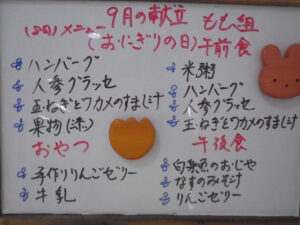 9月の献立 もも組
(8日)メニュー (おにぎりの日)午前食
ハンバーグ
人参グラッセ
玉ねぎとワカメのすまし汁
果物
おやつ
手作りりんごゼリー
牛乳
米粥
ハンバーグ
人参グラッセ
玉ねぎとワカメのすまし汁
午後食
白身魚のおじや
なすのみそ汁
りんごゼリー